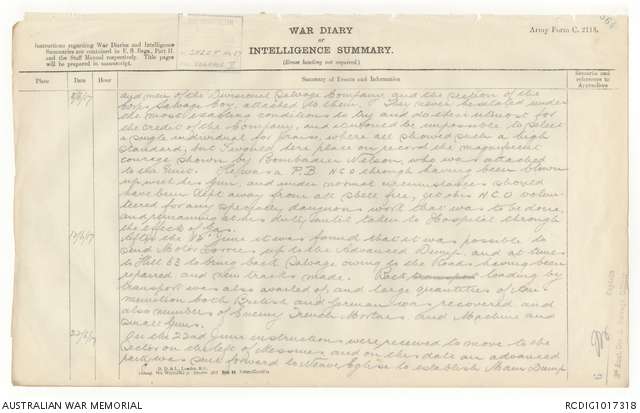 WAR DIARY
or
INTELLIGENCE SUMMARY.
(Erase heading not required.)
Army Form C. 2118.
Instructions regarding War Diaries and Intelligence
Summaries are contained in F. S. Regs., Part II.
and the Staff Manual respectively. Title pages
will be prepared in manuscript.
Place
Date
Hour
Summary of Events and Information
Remarks and
references to
Appendices
and men of the Divisional Salvage Company and the section of the
Corps Salvage Coy, attached to them. They never hesitated under
the most exacting conditions to try and do their utmost for
the credit of the Company, and it would be impossible to select
a single individual for praise, where all showed such a high
standard, but I would here place on record the magnificent
courage shown by Bombadier Watson, who was attached
to the Unit. He was a P.B. NCO through having been blown
up with his Gun, and under normal circumstances should
have been kept away from all shell fire, yet this NCO volun-
teered for any specially dangerous work that was to be done,
and remaining at his duty until taken to Hospital through
the effects of Gas.
After the June it was found that it was possible to
send Motor Lorries up to the Advanced Dump, and at times
to Hill 63 to bring back Salvage owing to the Roads having been
repaired and new tracks made. Back transport loading by
transport was also availed of, and large quantities of Am-
munition both British and German was recovered and
also numbers of Enemy Trench Mortars and Machine and
smaller Guns.
22/6/17
On the 22nd June instructions were received to move to the
Sector on the left of Messines and on this date an advanced
party was sent forward to Neuve Eglise to establish Main Dump
D. D. & L., London, E.C.
AUSTRALIAN WAR MEMORIAL
RCDIG1017318